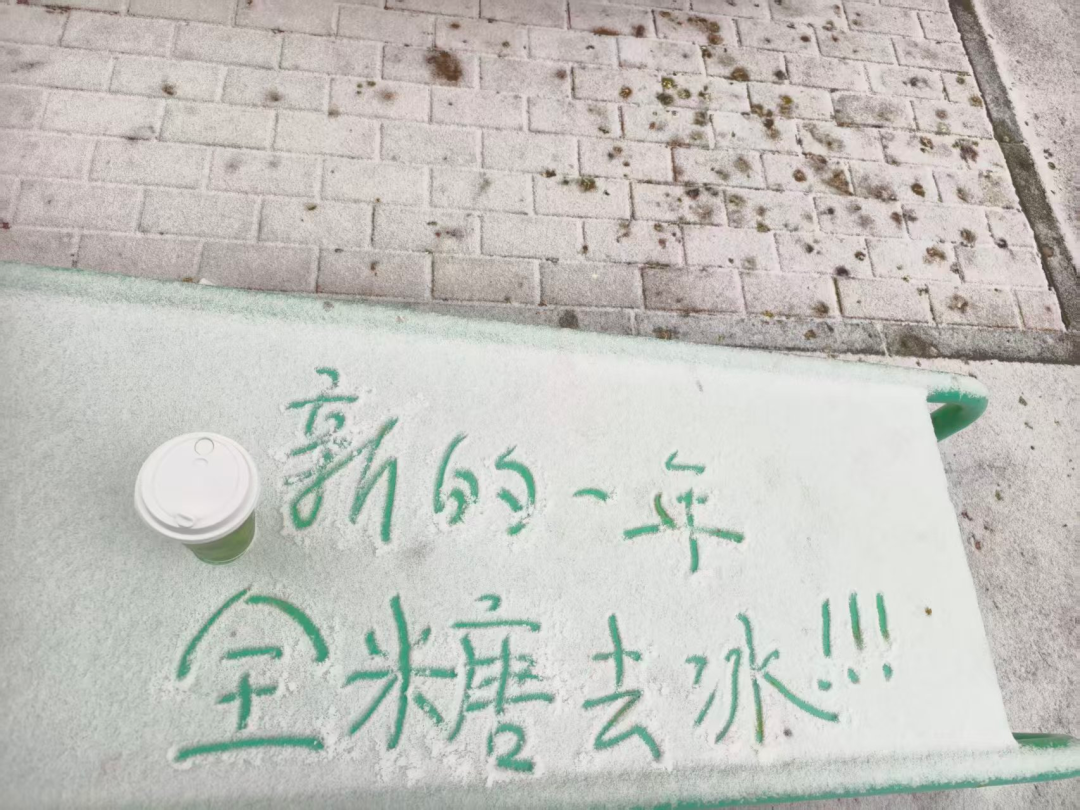 新的一年
全糖去冰!!!